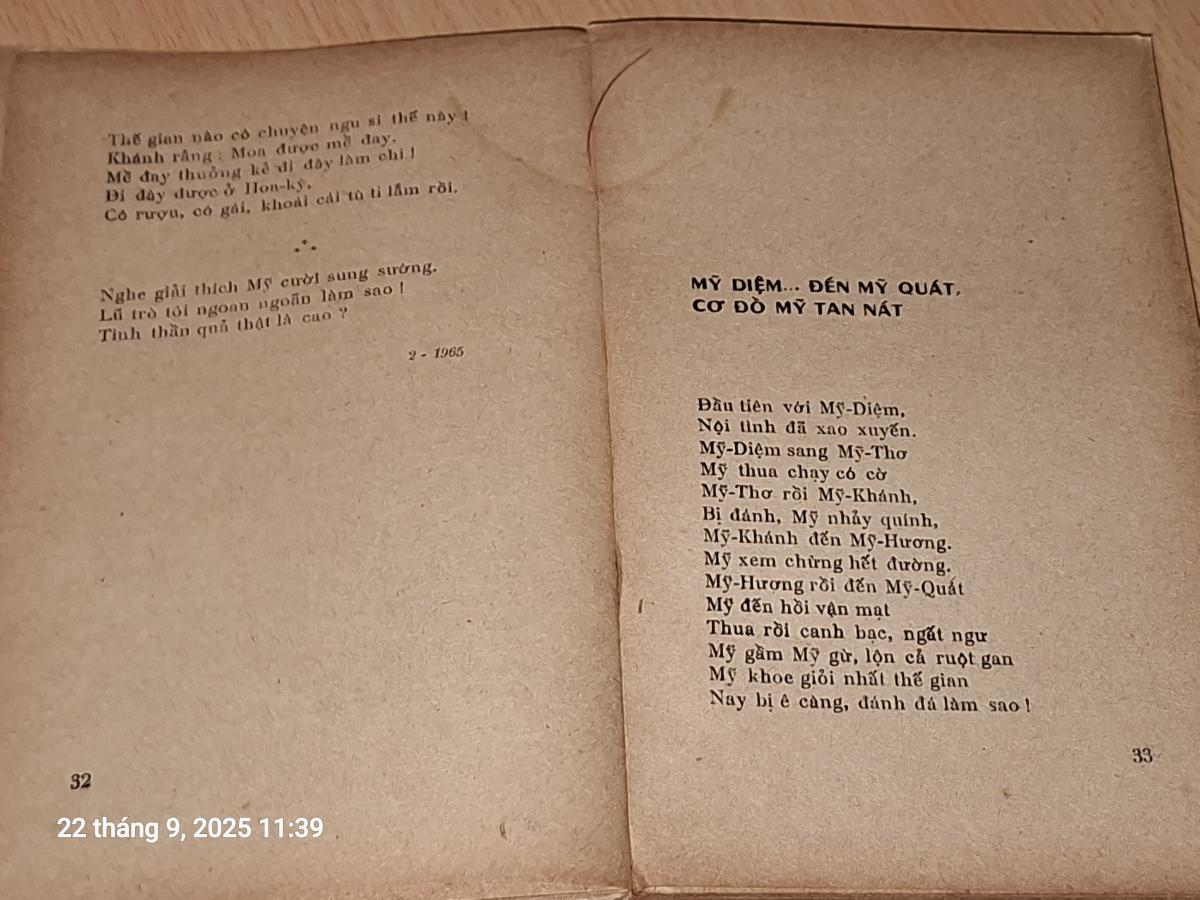 Thế gian nào có chuyện ngu si thế này !
Khánh rằng : Moa được mề đay.
Mề đay thưởng kẻ đi đày làm chi !
Đi đày được ở Hoa-kỳ,
Có rượu, có gái, khoái cái tù ti lắm rồi.
Nghe giải thích Mỹ cười sung sướng.
Lũ trò tôi ngoan ngoãn làm sao !
Tinh thần quả thật là cao ?
2 - 1965
32
MỸ DIỆM... ĐẾN MỸ QUÁT,
CƠ ĐỒ MỸ TAN NÁT
Đầu tiên với Mỹ-Diệm,
Nội tình đã xao xuyến.
Mỹ-Diệm sang Mỹ-Thơ
Mỹ thua chạy có cờ
Mỹ-Thơ rồi Mỹ-Khánh,
Bị đánh, Mỹ nhảy quính,
Mỹ-Khánh đến Mỹ-Hương.
Mỹ xem chừng hết đường.
Mỹ-Hượng rồi đến Mỹ-Quát
Mỹ đến hồi vận mạt
Thua rồi canh bạc, ngất ngư
Mỹ gầm Mỹ gừ, lộn cả ruột gan
Mỹ khoe giỏi nhất thế gian
Nay bị ê càng, đánh đá làm sao !
33
22 tháng 9, 2025 11:39